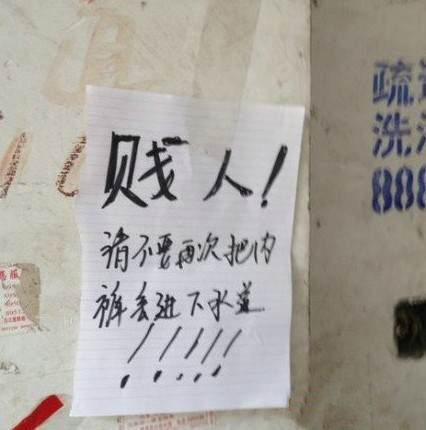 贱人!
请不要再次把内
裤丢进下水道
!!!!!
疏
洗
888